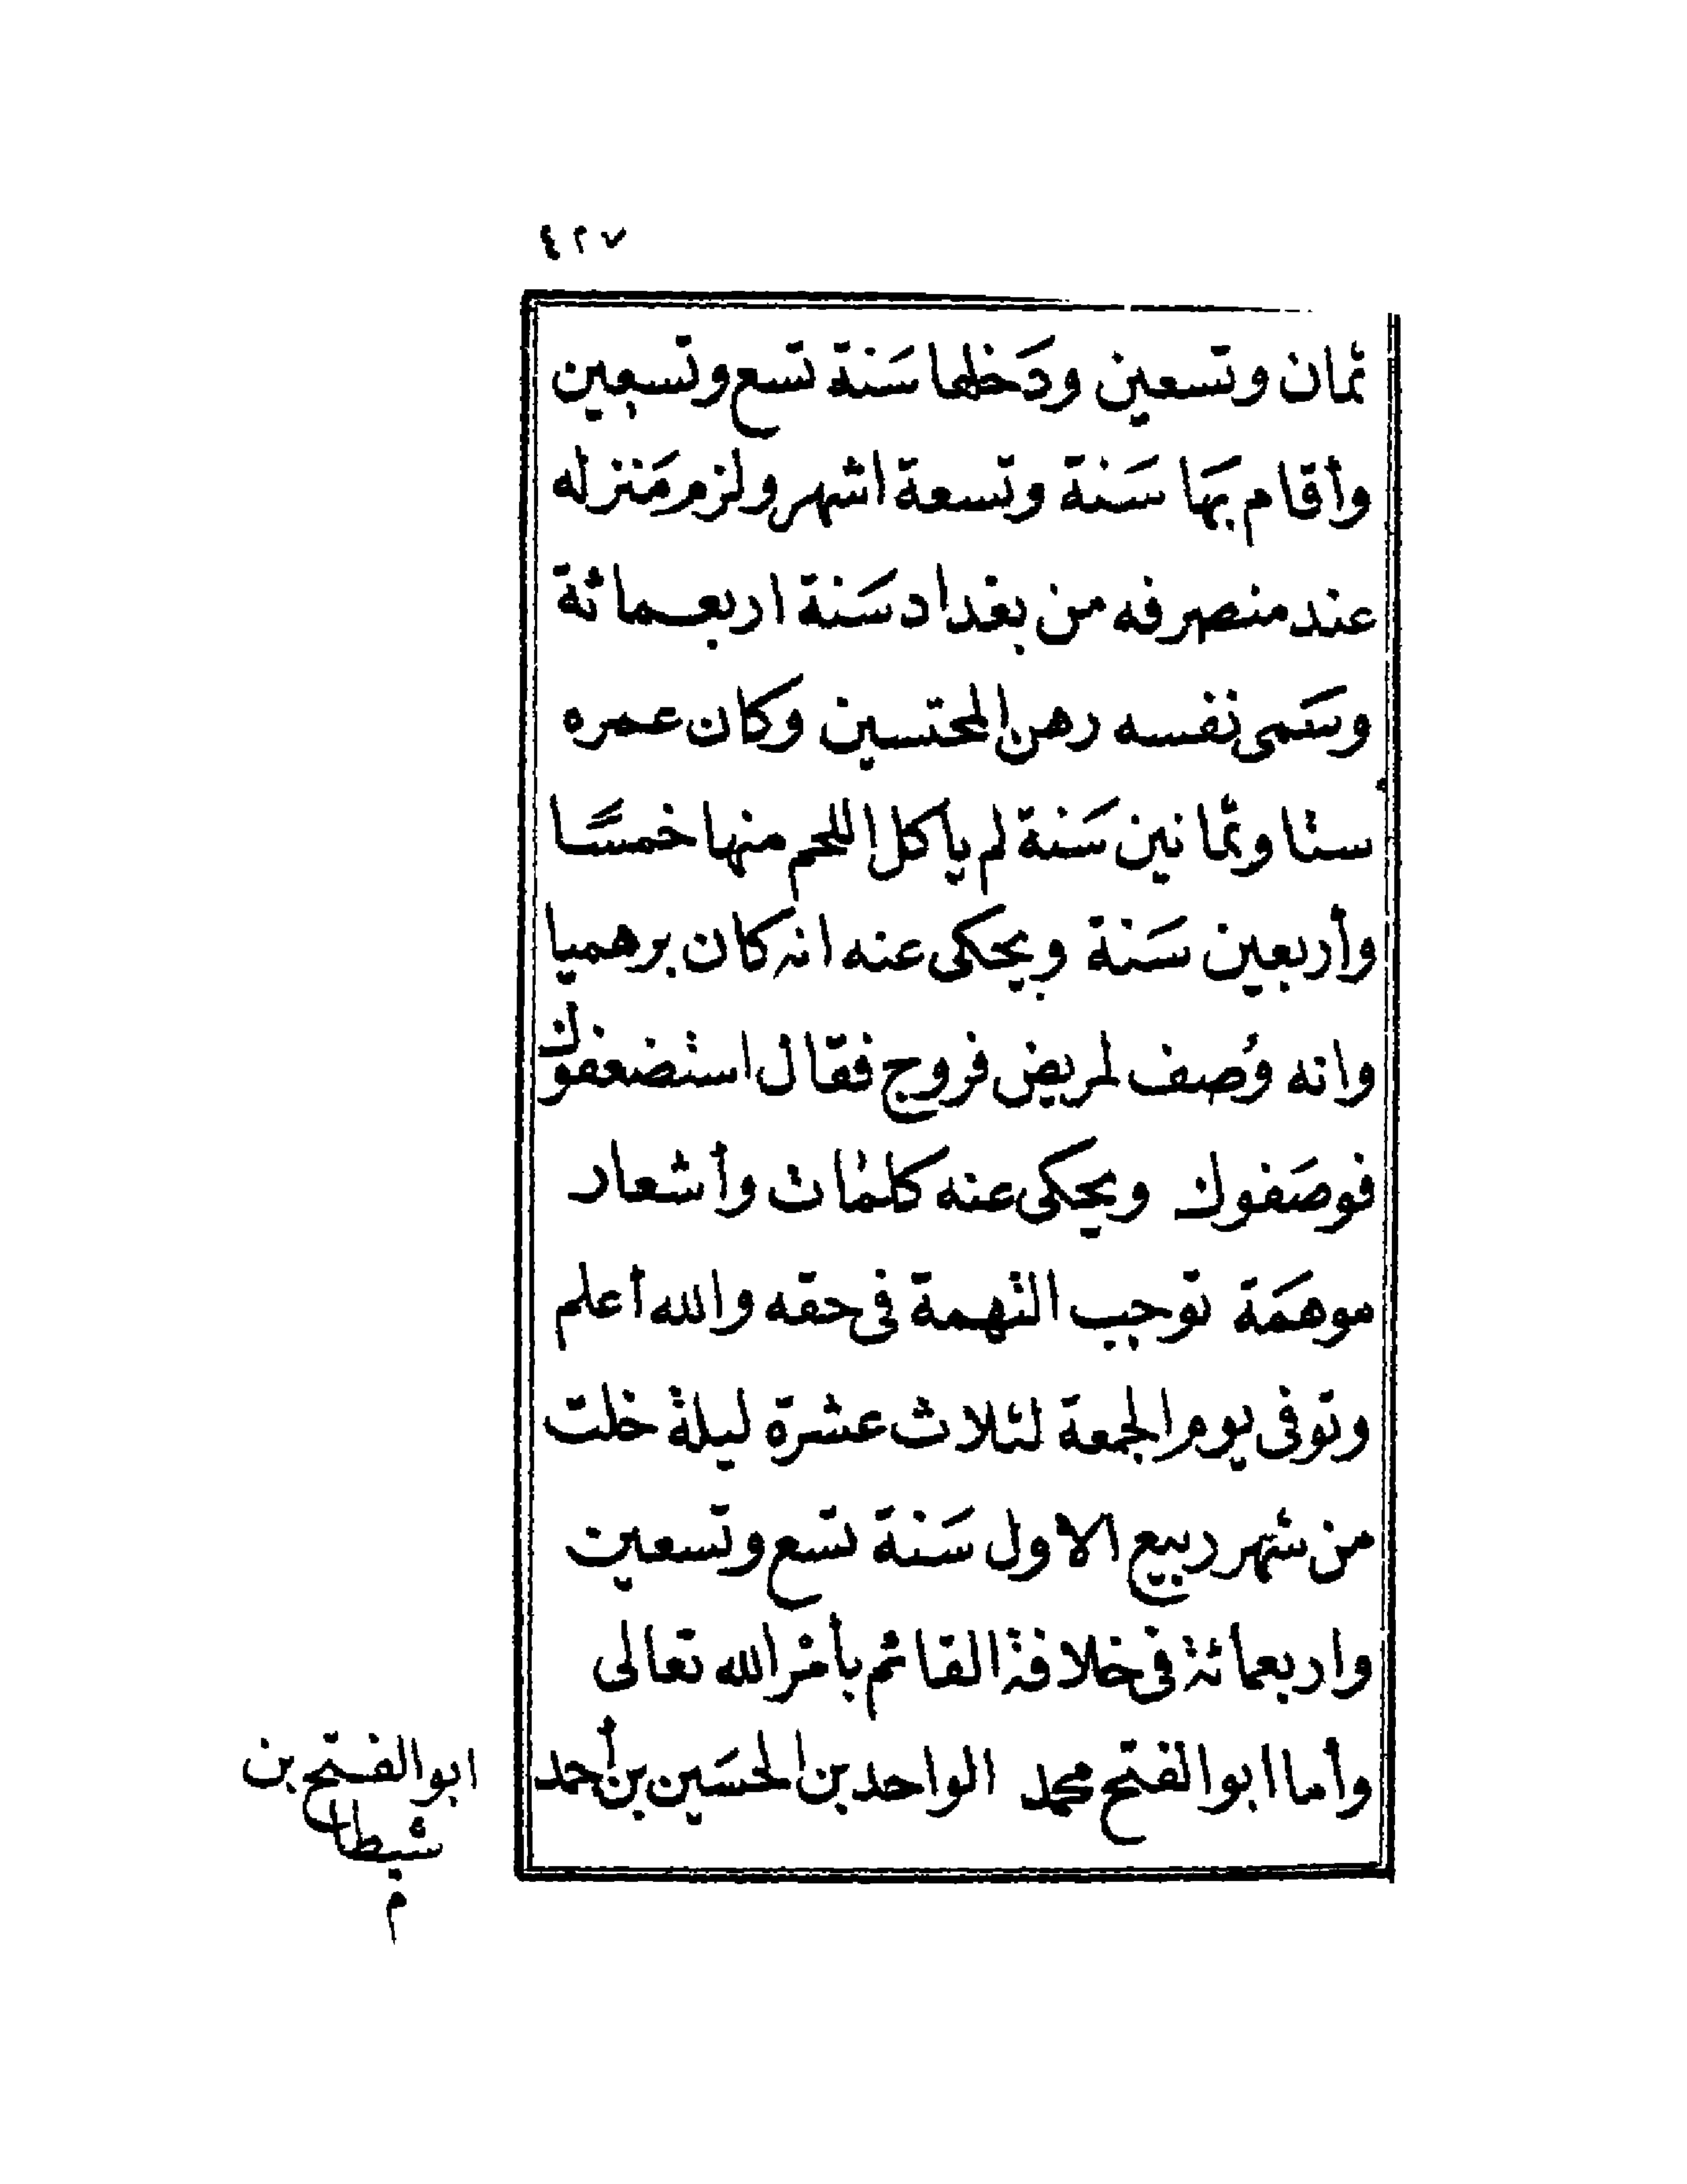 ٤٢٧
ثمان وتسعين ودَخلها سَنة تسع وتسعين
وأقام بهَا سَنة وتسعة اشهر ولزم مَنزله
عند منصرفه من بغداد سَنة اربعمائة
وسَمى نفسه رهن المحتسبين وكان عمره
ستا وثمانين سَنة لم ياكل اللحم منها خمسًا
وأربعين سَنة ويحكى عنه انه كان برهميا
وانه وُصف لمريض فروج فقال استضعفوك
فوصَفوك ويحكى عنه كلمات وأشعار
موهمَة توجب التهمة فى حقه والله أعلم
وتوفى يوم الجمعة لثلاث عشرة ليلة خلت
من شهر ربيع الاول سَنة تسع وتسعين
واربعمائة فى خلافة القائم بأمْر الله تعالى
وأما ابو الفتح محمد الواحد بن الحسَين بن أحمد
ابو الفتح بن
شيطا
م